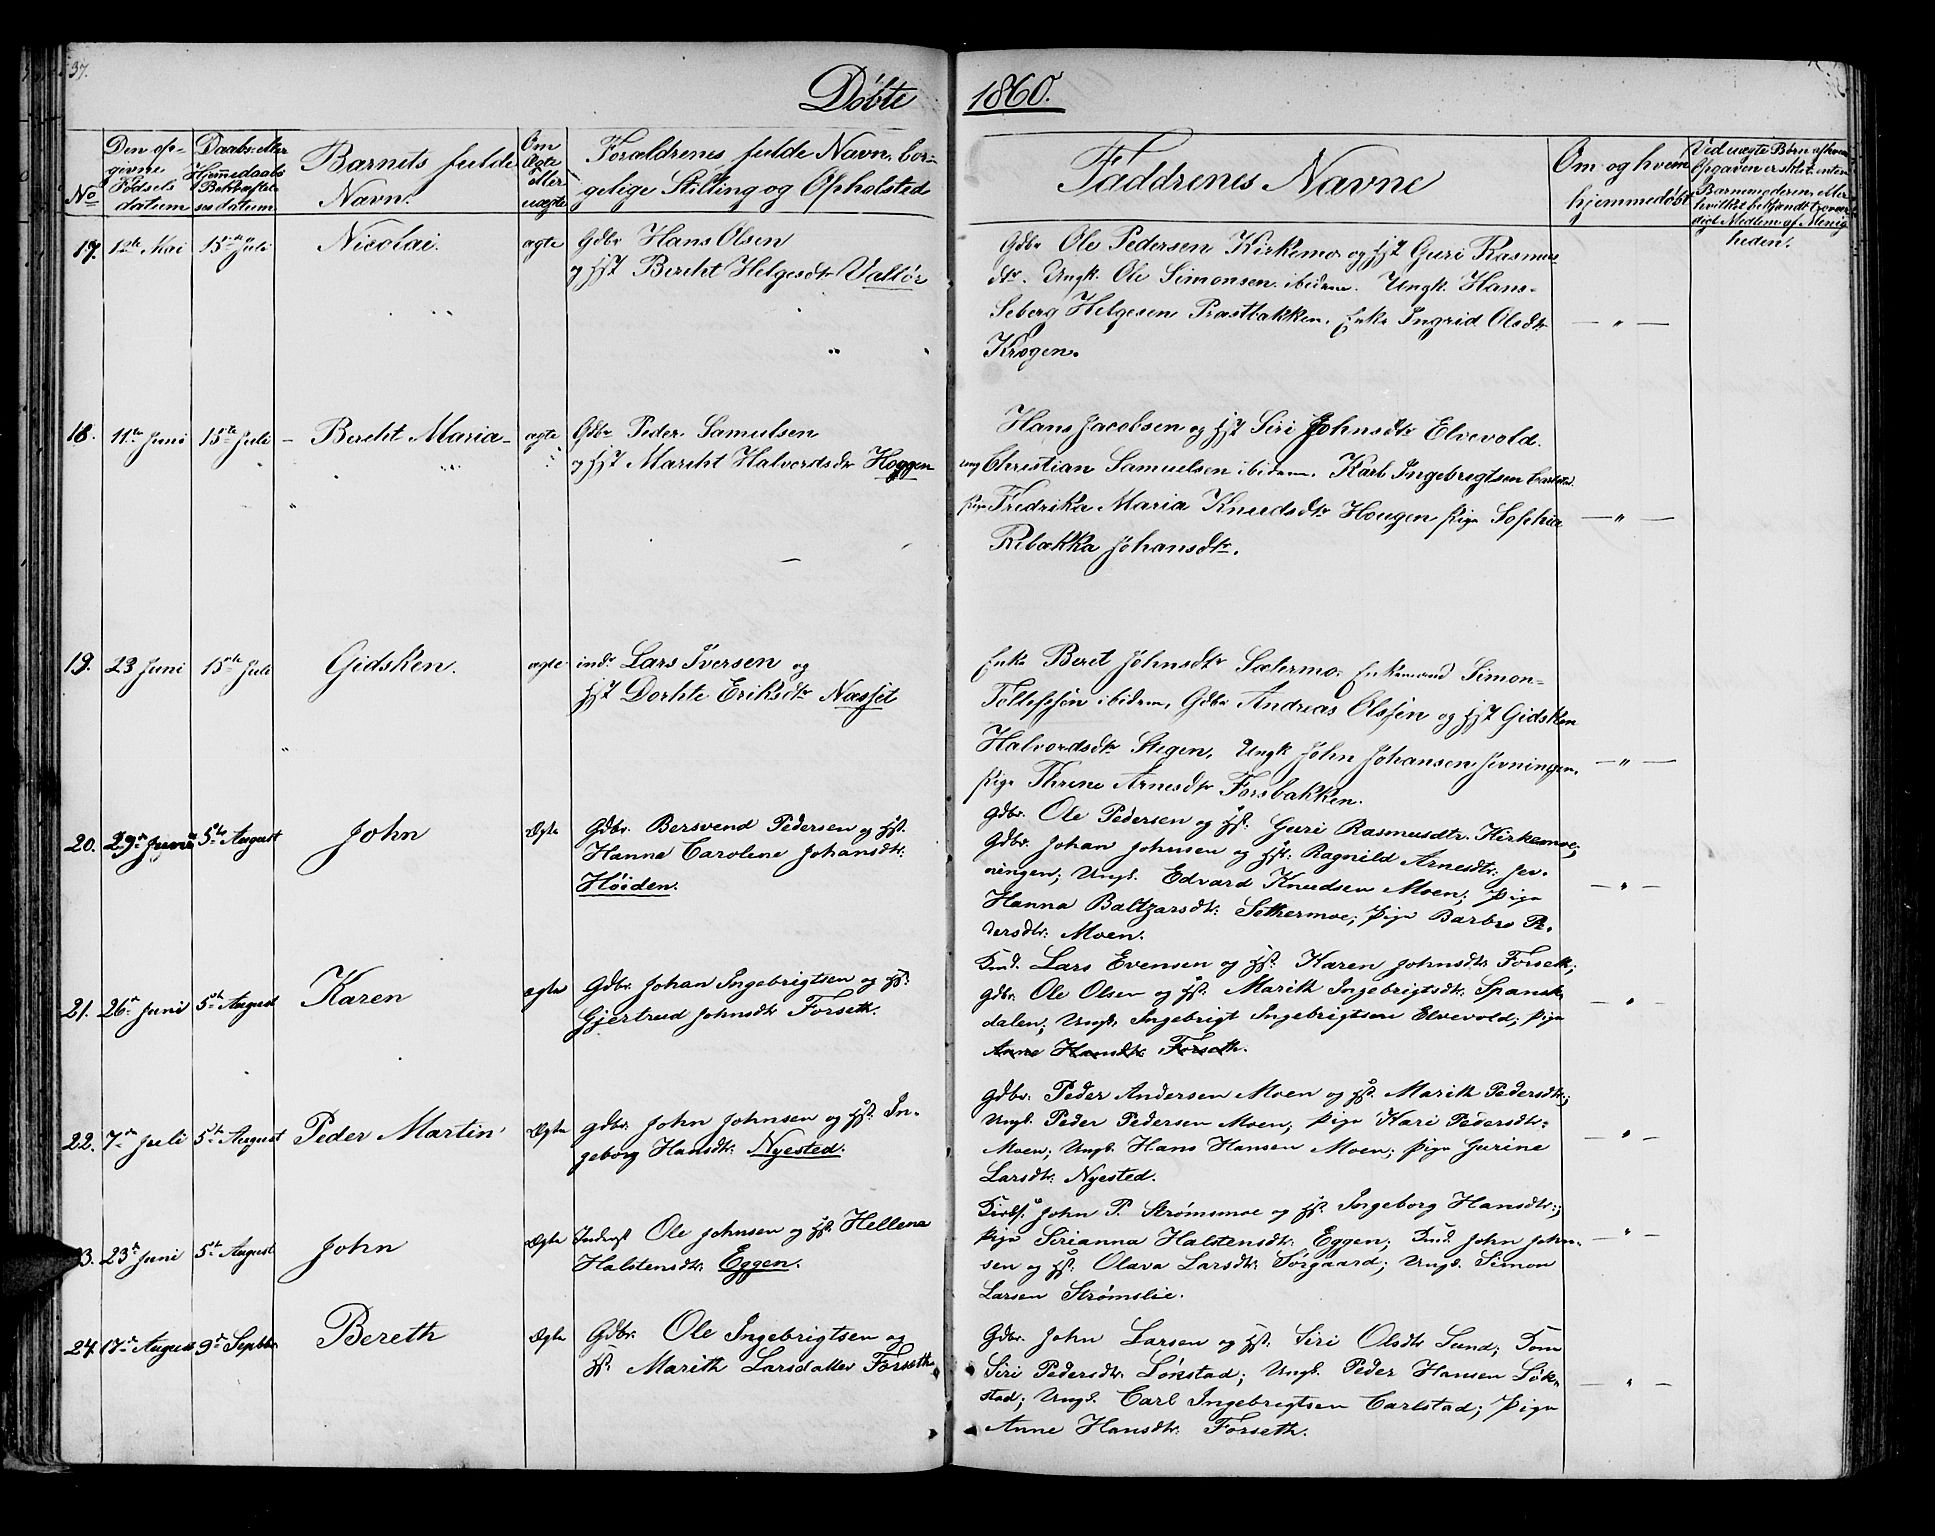 37.
Döbte 1860.
No
Den op-
givne
Födsels
datum
Daabs- eller
Hjemedaabs
Bekræftel
ses datum
Barnets fulde
Navn.
Om
Ægte
eller
uægte
Forældrenes fulde Navn, bor-
gelige Stilling og Opholsted
Faddrenes Navne
Om og hvem
hjemmedöbt
Ved uægte Börn af hvem
Opgaven er sktet, enten
Barnemoderen, eller
hvilket bekjendt trovær
digt Medlem af Menig
heden.
17. 12te Mai 15de Juli Nicolai. ægte Gdbr Hans Olsen
og Hst Bereht Helgesdtr Valtör
Gdbr Ole Pedersen Kirkemo og Hst Guri Rasmus
dtr. Ungk. Ole Simonsen ibidem. Ungk. Hans-
Seberg Helgesen Prastbakken. Enke Ingrid Olsdtr
Krogen. — " —
18. 11te Juni 15de Juli — Bereht Maria — ægte Gdbr Peder Samulsen
og Hst Mareht Halvordsdr Hoggen
Hans Jacobsen og Hst Siri Johnsdtr Elvevold.
ung Christian Samuelsen ibidem. Karl Ingebrigtsen Carlstad.
Pige Fredrika Maria Knudsdtr Hougen Pige Sophia — " —
Rebækka Johansdtr.
19. 23 Juni 15de Juli Gidsken. ægte indr Lars Iversen og
Hst Dorhte Eriksdtr Næsset
Enke Beret Johnsdtr Sætermo. Enkemand Simon-
Tollefsen ibidem, Gdbr Andreas Olsen og Hst Gidsken
Halvordsdtr Stegen, Ungk John Johansen Jevningen, — " —
Pige Thrine Arnesdtr Forsbakken.
20. 29de Juni 5te August John Ægte Gdbr. Bersvend Pedersen og Hst.
Hanna Carolene Johansdtr:
Höiden.
Gdbr. Ole Pedersen og Hst. Guri Rasmusdtr. Kirkemoe;
Gdbr. Johan Johnsen og Hst: Ragnild Arnesdtr: Jev-
ningen; Ungk. Edvard Knudsen Moen; Pige — " —
Hanna Baltzarsdtr: Sethermoe; Pige Barbro Pe-
dersdtr: Moen.
21. 26de Juni 5te August Karen ægte Gdbr. Johan Ingebrigtsen og Hst:
Gjertrud Johnsdtr Forseth.
Indr. Lars Evensen og Hst. Karen Johnsdtr Forseth;
Gdbr. Ole Olsen og Hst: Marith Ingebrigtsdtr: Spansk- — " —
dalen; Ungk. Ingebrigt Ingebrigtsen Elvevold; Pige
Anne Hansdtr: Forseth.
22. 7de Juli 5te August Peder Martin Ægte Gdbr. John Johnsen og Hst: In-
geborg Hansdtr: Nyested.
Gdbr: Peder Andersen Moen og Hst. Marith Pedersdtr;
Ungk. Peder Pedersen Moen, Pige Kari Pedersdtr: — " —
Moen; Ungk. Hans Hansen Moen; Pige Gurine
Larsdtr: Nyested.
23. 23de Juni 5te August John Ægte Inderst Ole Johnsen og Hst: Hellena
Halstensdtr: Eggen.
John P. Strömsmoe og Hst. Ingeborg Hansdtr:;
Pige Serianna Halstensdtr: Eggen; Ind. John John- — " —
sen og Hst: Olava Larsdtr: Sörgaard; Ungk. Simon
Larsen Strömslie.
24. 17de August 9de Septbr. Bereth Ægte Gdbr. Ole Ingebrigtsen og
Hst. Marith Larsdatter Forseth
Gdbr. John Larsen og Hst. Siri Olsdtr Sund; Kone
Siri Pedersdtr: Lökstad; Ungk. Peder Hansen Lök- — " —
stad; Ungk. Carl Ingebrigtsen Carlstad; Pige
Anne Hansdtr: Forseth.